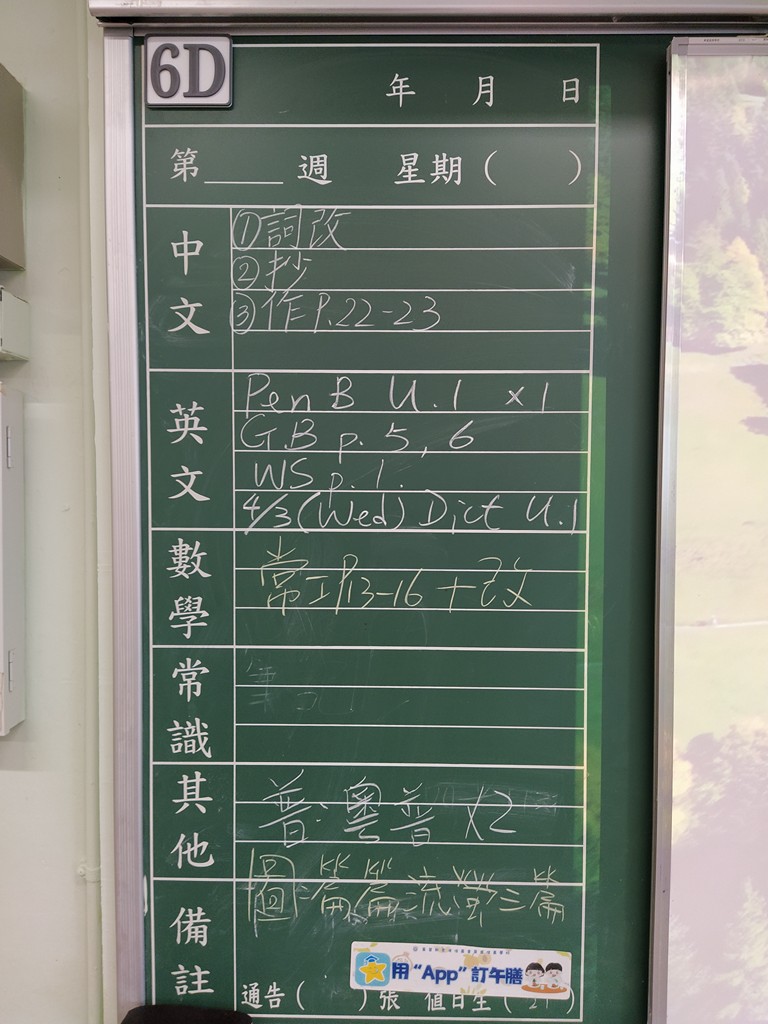 6D
年 月 日
第____週 星期( )
中文
①詞改
②抄
③作P.22-23
英文
Pen B U.1 ×1
G.B p. 5, 6
WS p. 1.
4/3 (Wed) Dict U.1
數學
常工P.13-16 + 改
常識
其他
普:粵普 X2
圖:篇篇流螢三篇
備註
用“App”訂午膳
通告( )張 值日生( 21 )